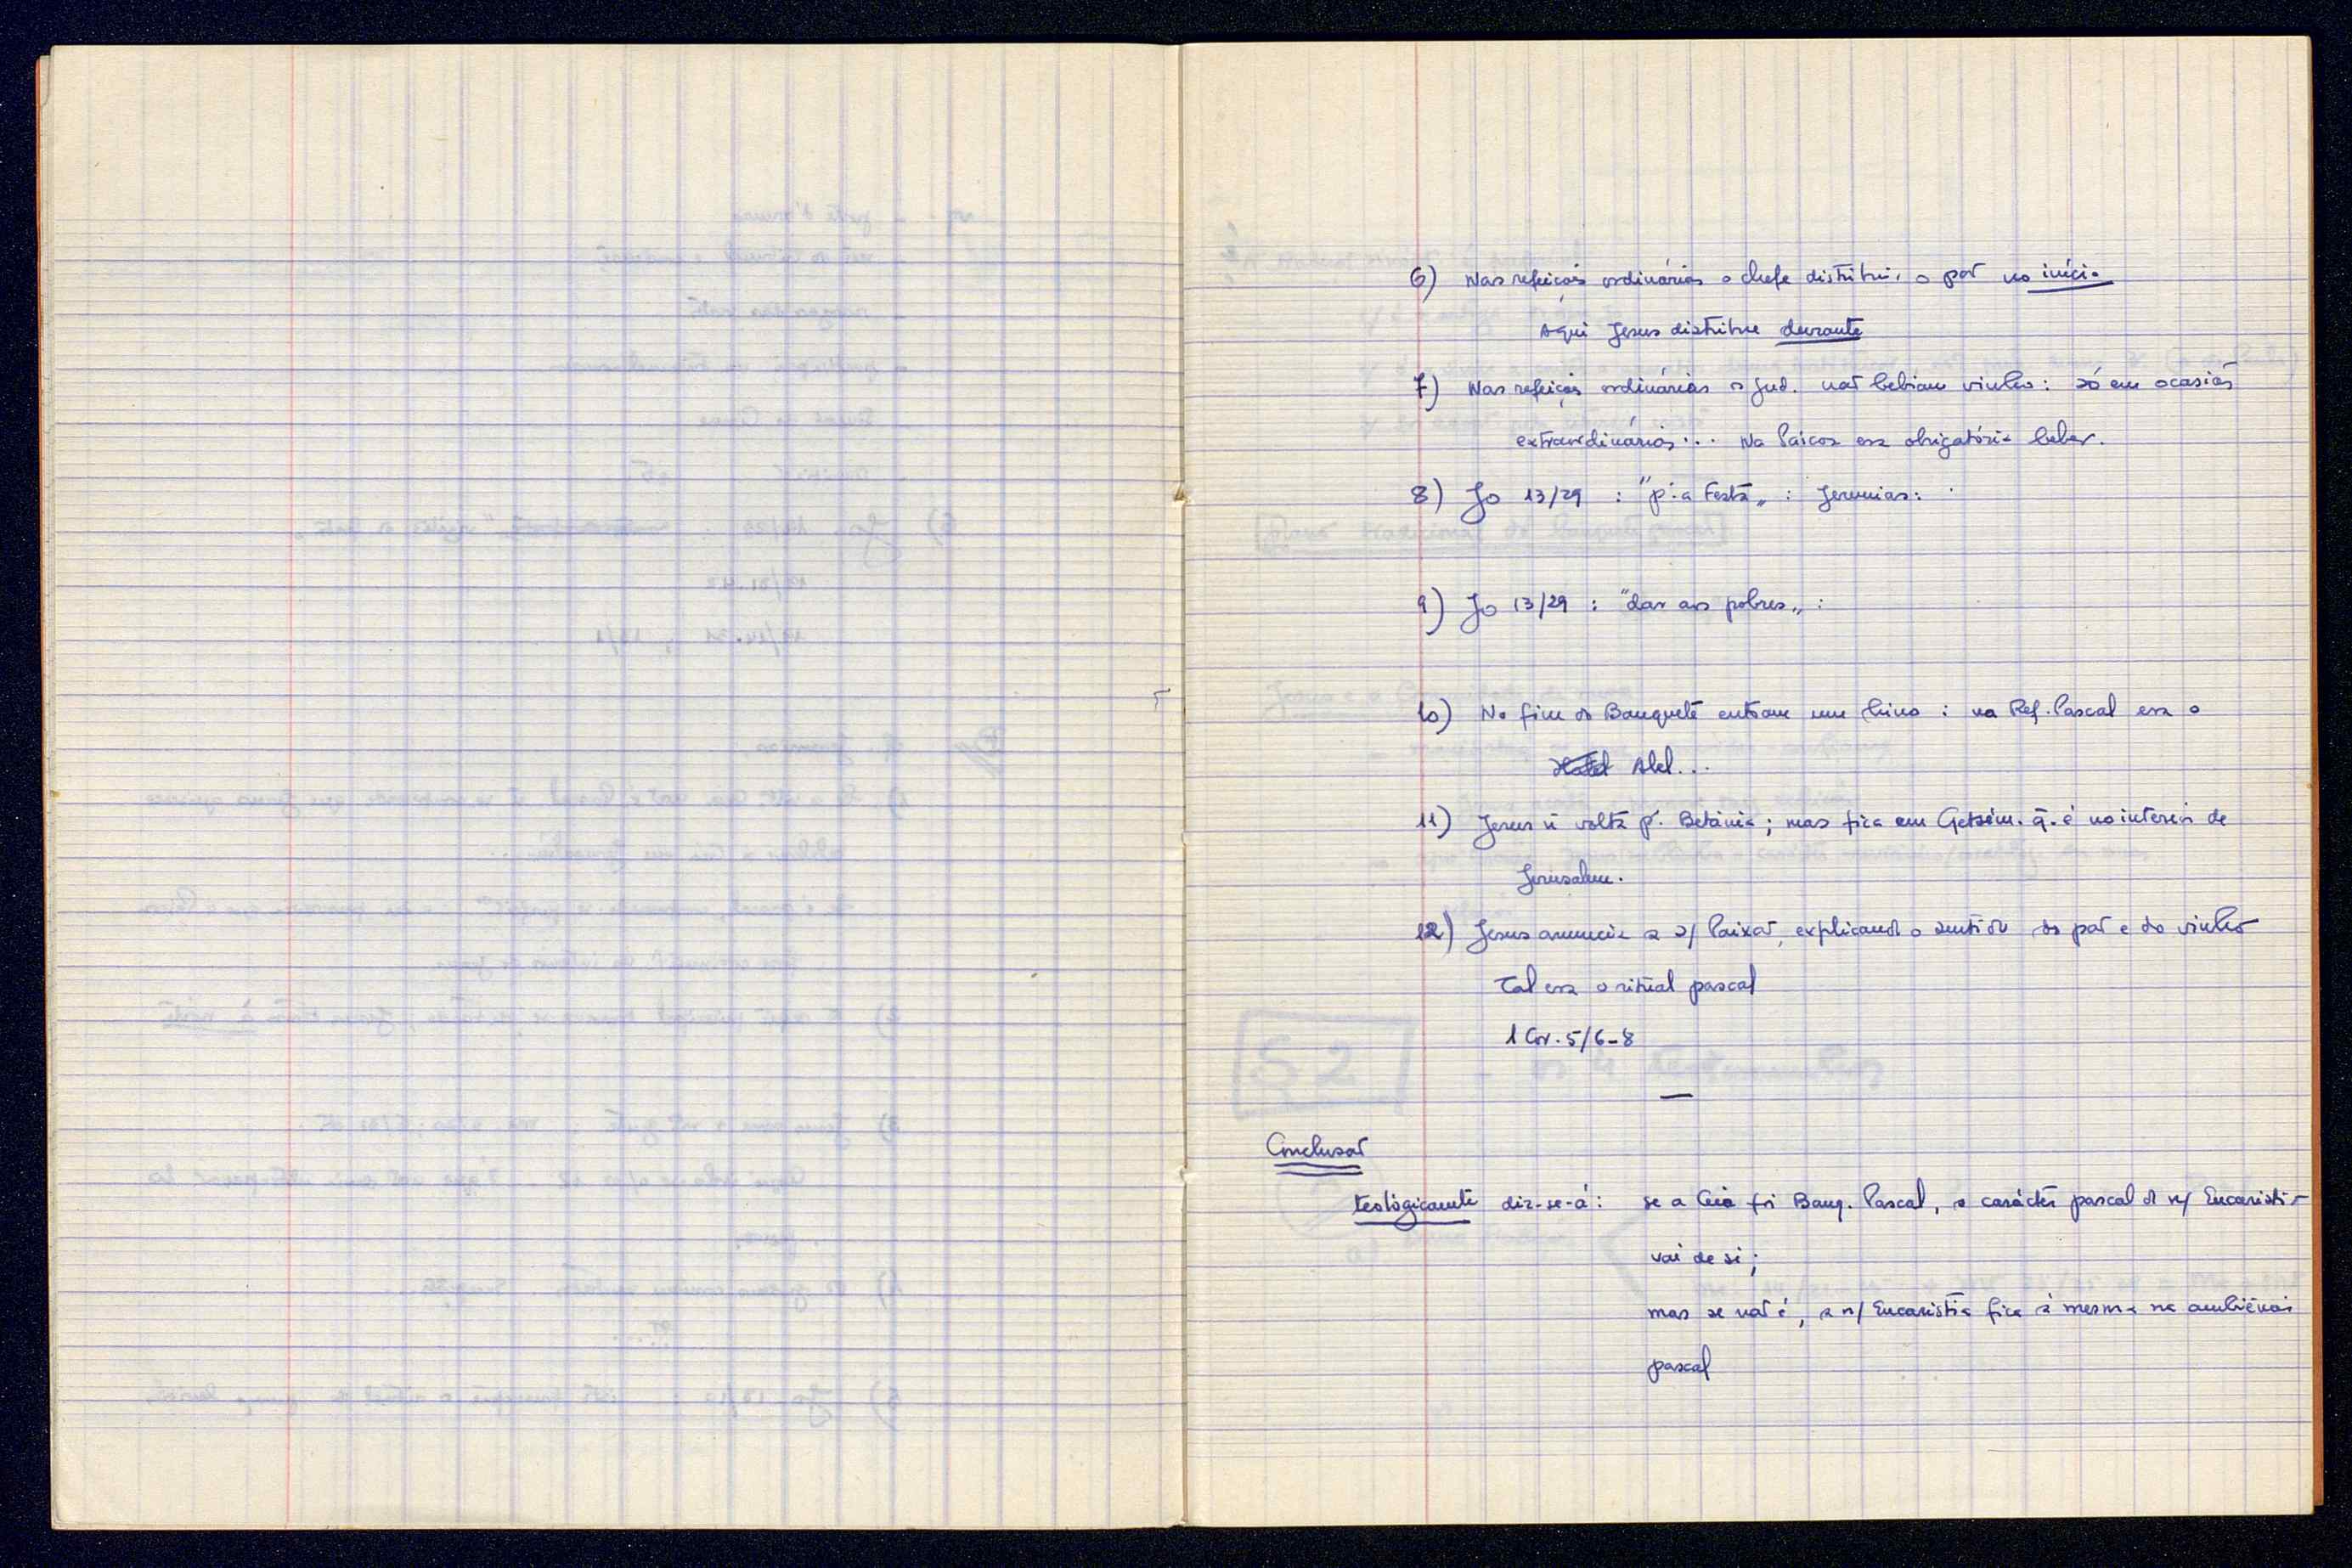 6) Nas refeições ordinárias o chefe distribui o pão no início
Aqui Jesus distribue durante
7) Nas refeições ordinárias o Jud. não bebiam vinho: só em ocasiões
extraordinárias... Na Páscoa era obrigatório beber.
8) Jo 13/29 : "p.ª a Festa„ : Jeremias:
9) Jo 13/29 : "dar aos pobres„ :
10) No fim do Banquete entoam um hino : na Ref. Pascal era o
Alel...
11) Jesus ñ volta p.ª Betânia; mas fica em Getsém. q̃. é no interior de
Jerusalem.
12) Jesus anuncia a s/ Paixão, explicando o sentido do pão e do vinho
Tal era o ritual pascal
1 Cor. 5/6-8
—
Conclusão
teològicamente dir-se-á: se a Ceia foi Banq. Pascal, o carácter pascal da n/ Eucaristia
vai de si;
mas se não é, a n/ Eucaristia fica à mesma na ambiência
pascal